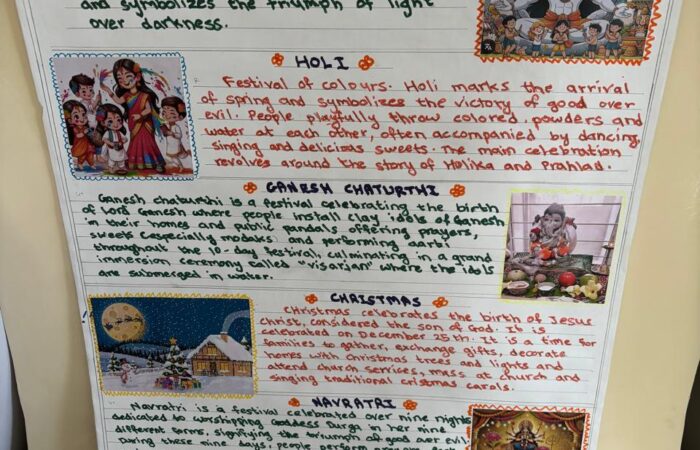 and symbolizes the triumph of light
over darkness.
HOLI
Festival of colours. Holi marks the arrival
of spring and symbolizes the victory of good over
evil. People playfully throw colored powders and
water at each other, often accompanied by dancing,
singing and delicious sweets. The main celebration
revolves around the story of Holika and Prahlad.
GANESH CHATURTHI
Ganesh chaturthi is a festival celebrating the birth
of Lord Ganesh where people install clay idols of Ganesh
in their homes and public pandals offering prayers,
sweets (especially modaks) and performing aarti
throughout the 10-day festival, culminating in a grand
immersion ceremony called "visarjan" where the idols
are submerged in water.
CHRISTMAS
Christmas celebrates the birth of Jesus
Christ, considered the son of God. It is
celebrated on December 25th. It is a time for
families to gather, exchange gifts, decorate
homes with Christmas trees and lights and
attend church services, mass at church and
singing traditional cristmas carols.
NAVRATRI
Navratri is a festival celebrated over nine nights
dedicated to worshipping Goddess Durga in her nine
different forms, signifying the triumph of good over evil.
During these nine days, people perform